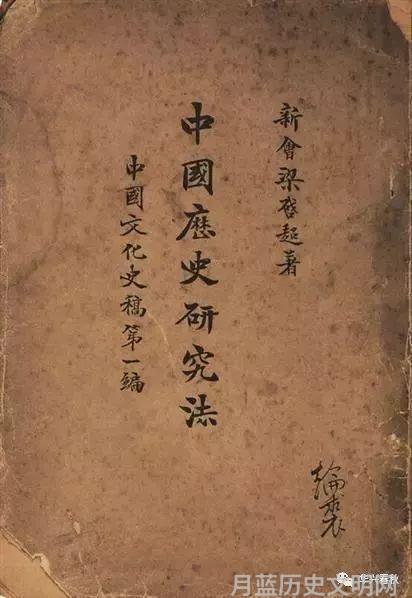 新會梁啓超著
中國歷史研究法
中國文化史稿第一編
华兴春秋
月蓝历史文明网